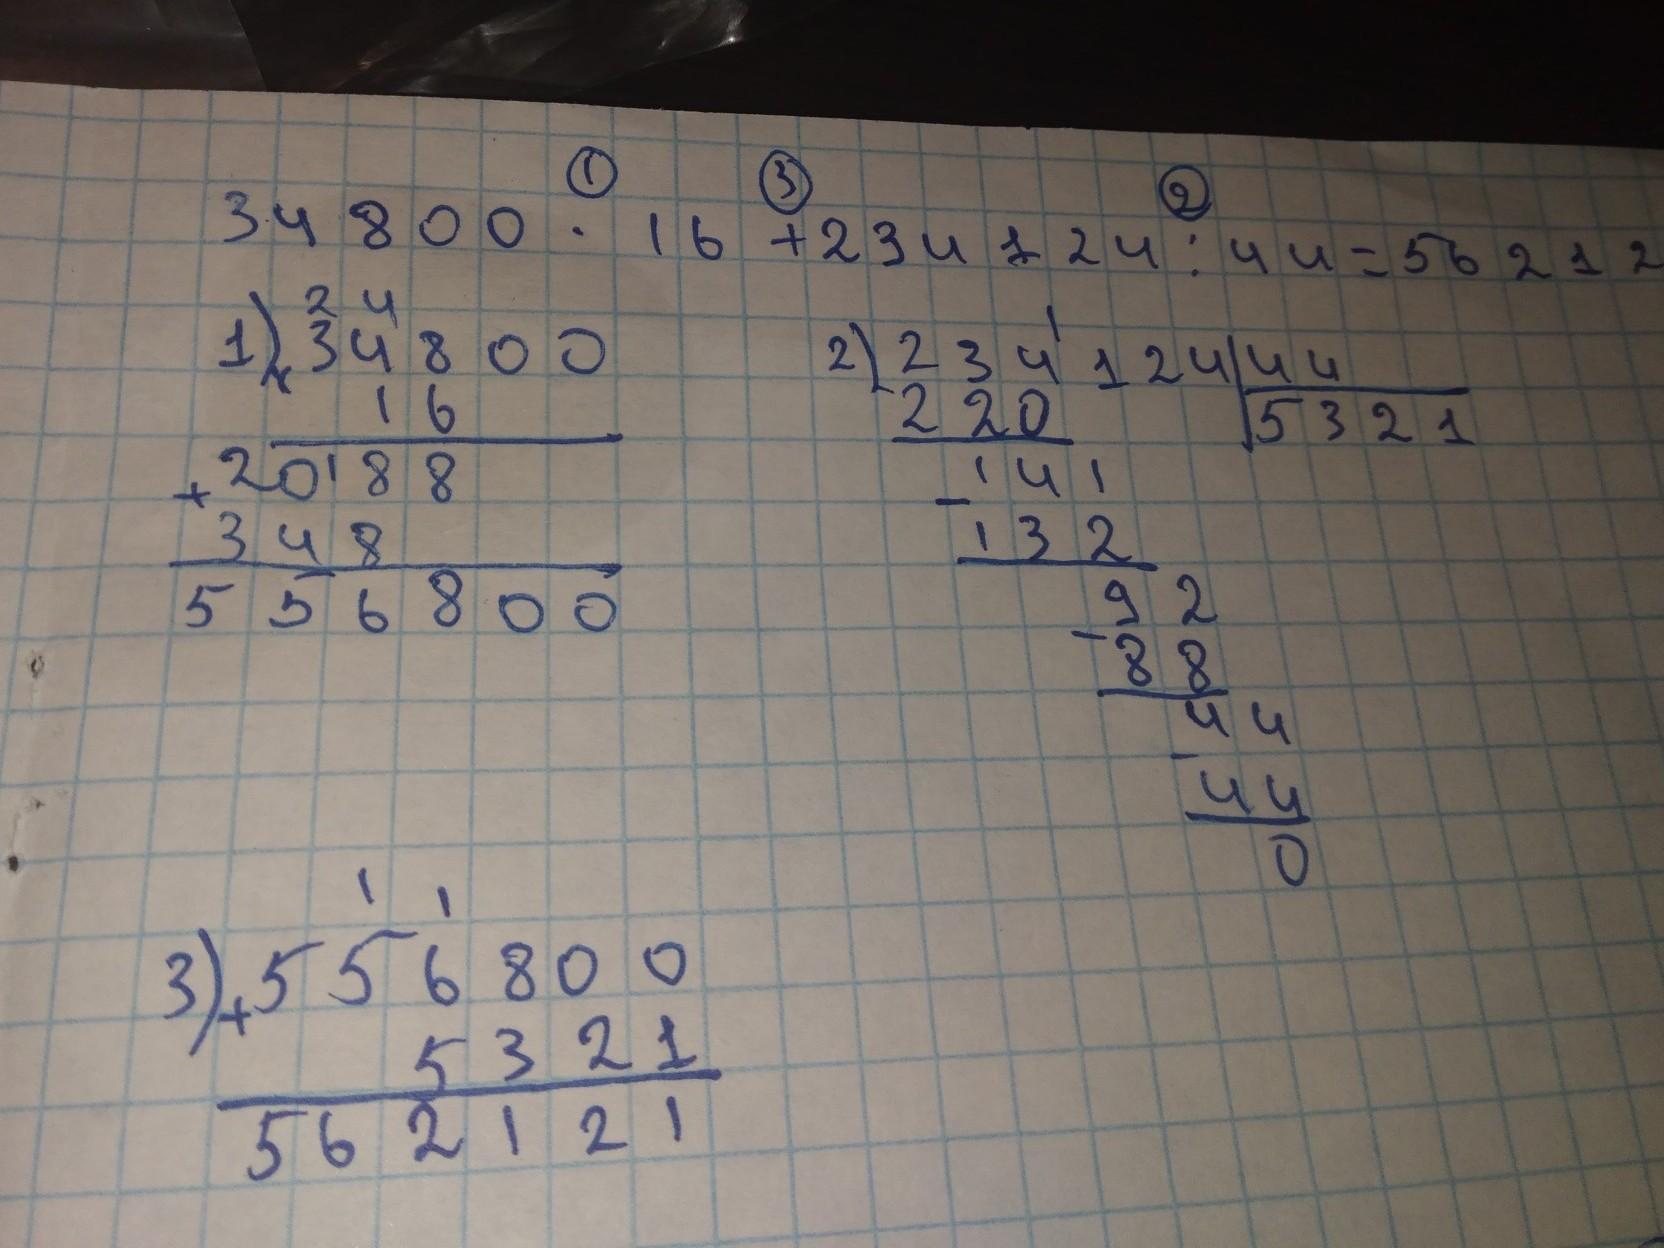 ① ③ ②
34800 · 16 + 234124 : 44 = 56212
24
1) × 34800
16
+ 20188
348
556800
1
2) - 234124 | 44
220 | 5321
- 141
132
- 92
88
- 44
44
0
1 1
3) + 556800
5321
562121